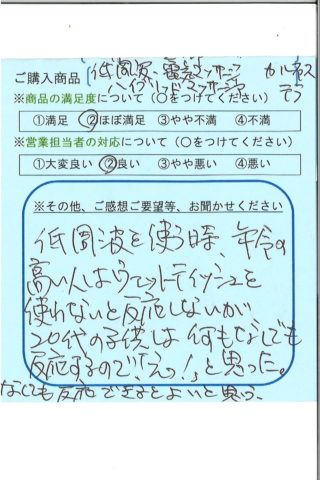 ご購入商品 低周波、電気マッサージ
ハイブリッドマッサージャー
※商品の満足度について（○をつけてください）
①満足 ②ほぼ満足 ③やや不満 ④不満
※営業担当者の対応について（○をつけてください）
①大変良い ②良い ③やや悪い ④悪い
※その他、ご感想ご要望等、お聞かせください
低周波を使う時、年令の
高い人はウェットティッシュを
使わないと反応しないが
20代の子供は何もなしでも
反応するので、「えっ!」と思った。
なくても反応できるとよいと思う。